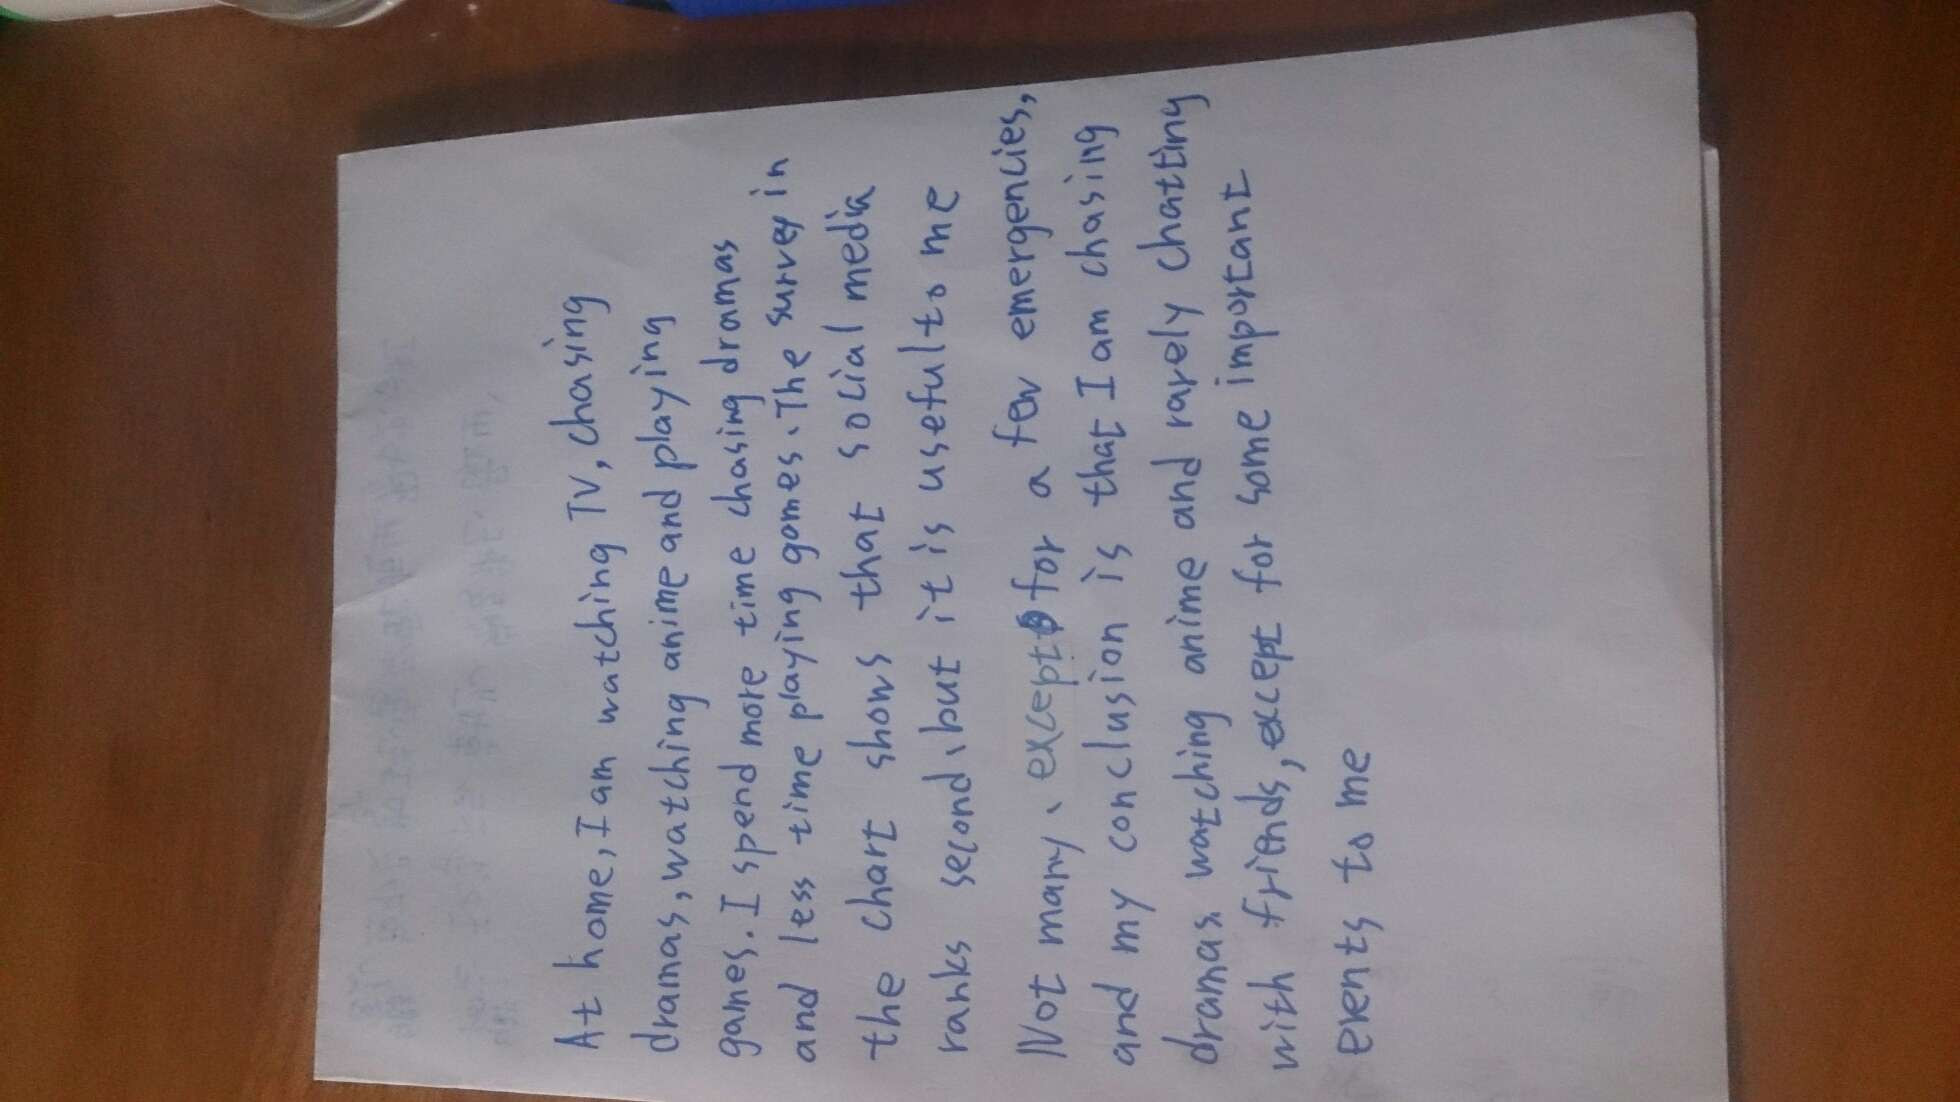 At home, I am watching TV, chasing
dramas, watching anime and playing
games. I spend more time chasing dramas
and less time playing games. The survey in
the chart shows that social media
ranks second, but it is useful to me
Not many, except for a few emergencies,
and my conclusion is that I am chasing
dramas. watching anime and rarely chatting
with friends, except for some important
events to me